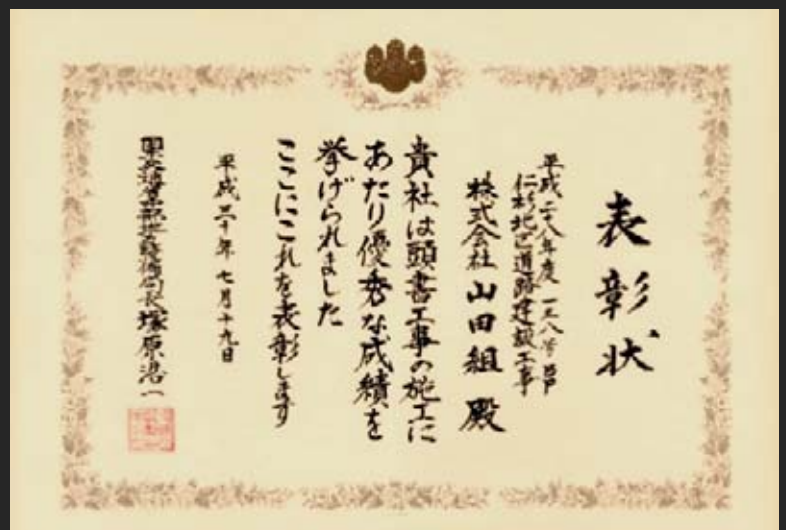 表彰状
平成二八年度 一三八号 昼戸
仁杉地区道路建設工事
株式会社 山田組 殿
貴社は頭書工事の施工に
あたり優秀な成績を
挙げられました
ここにこれを表彰します
平成三十年七月十九日
国土交通省中部地方整備局長 塚原浩一